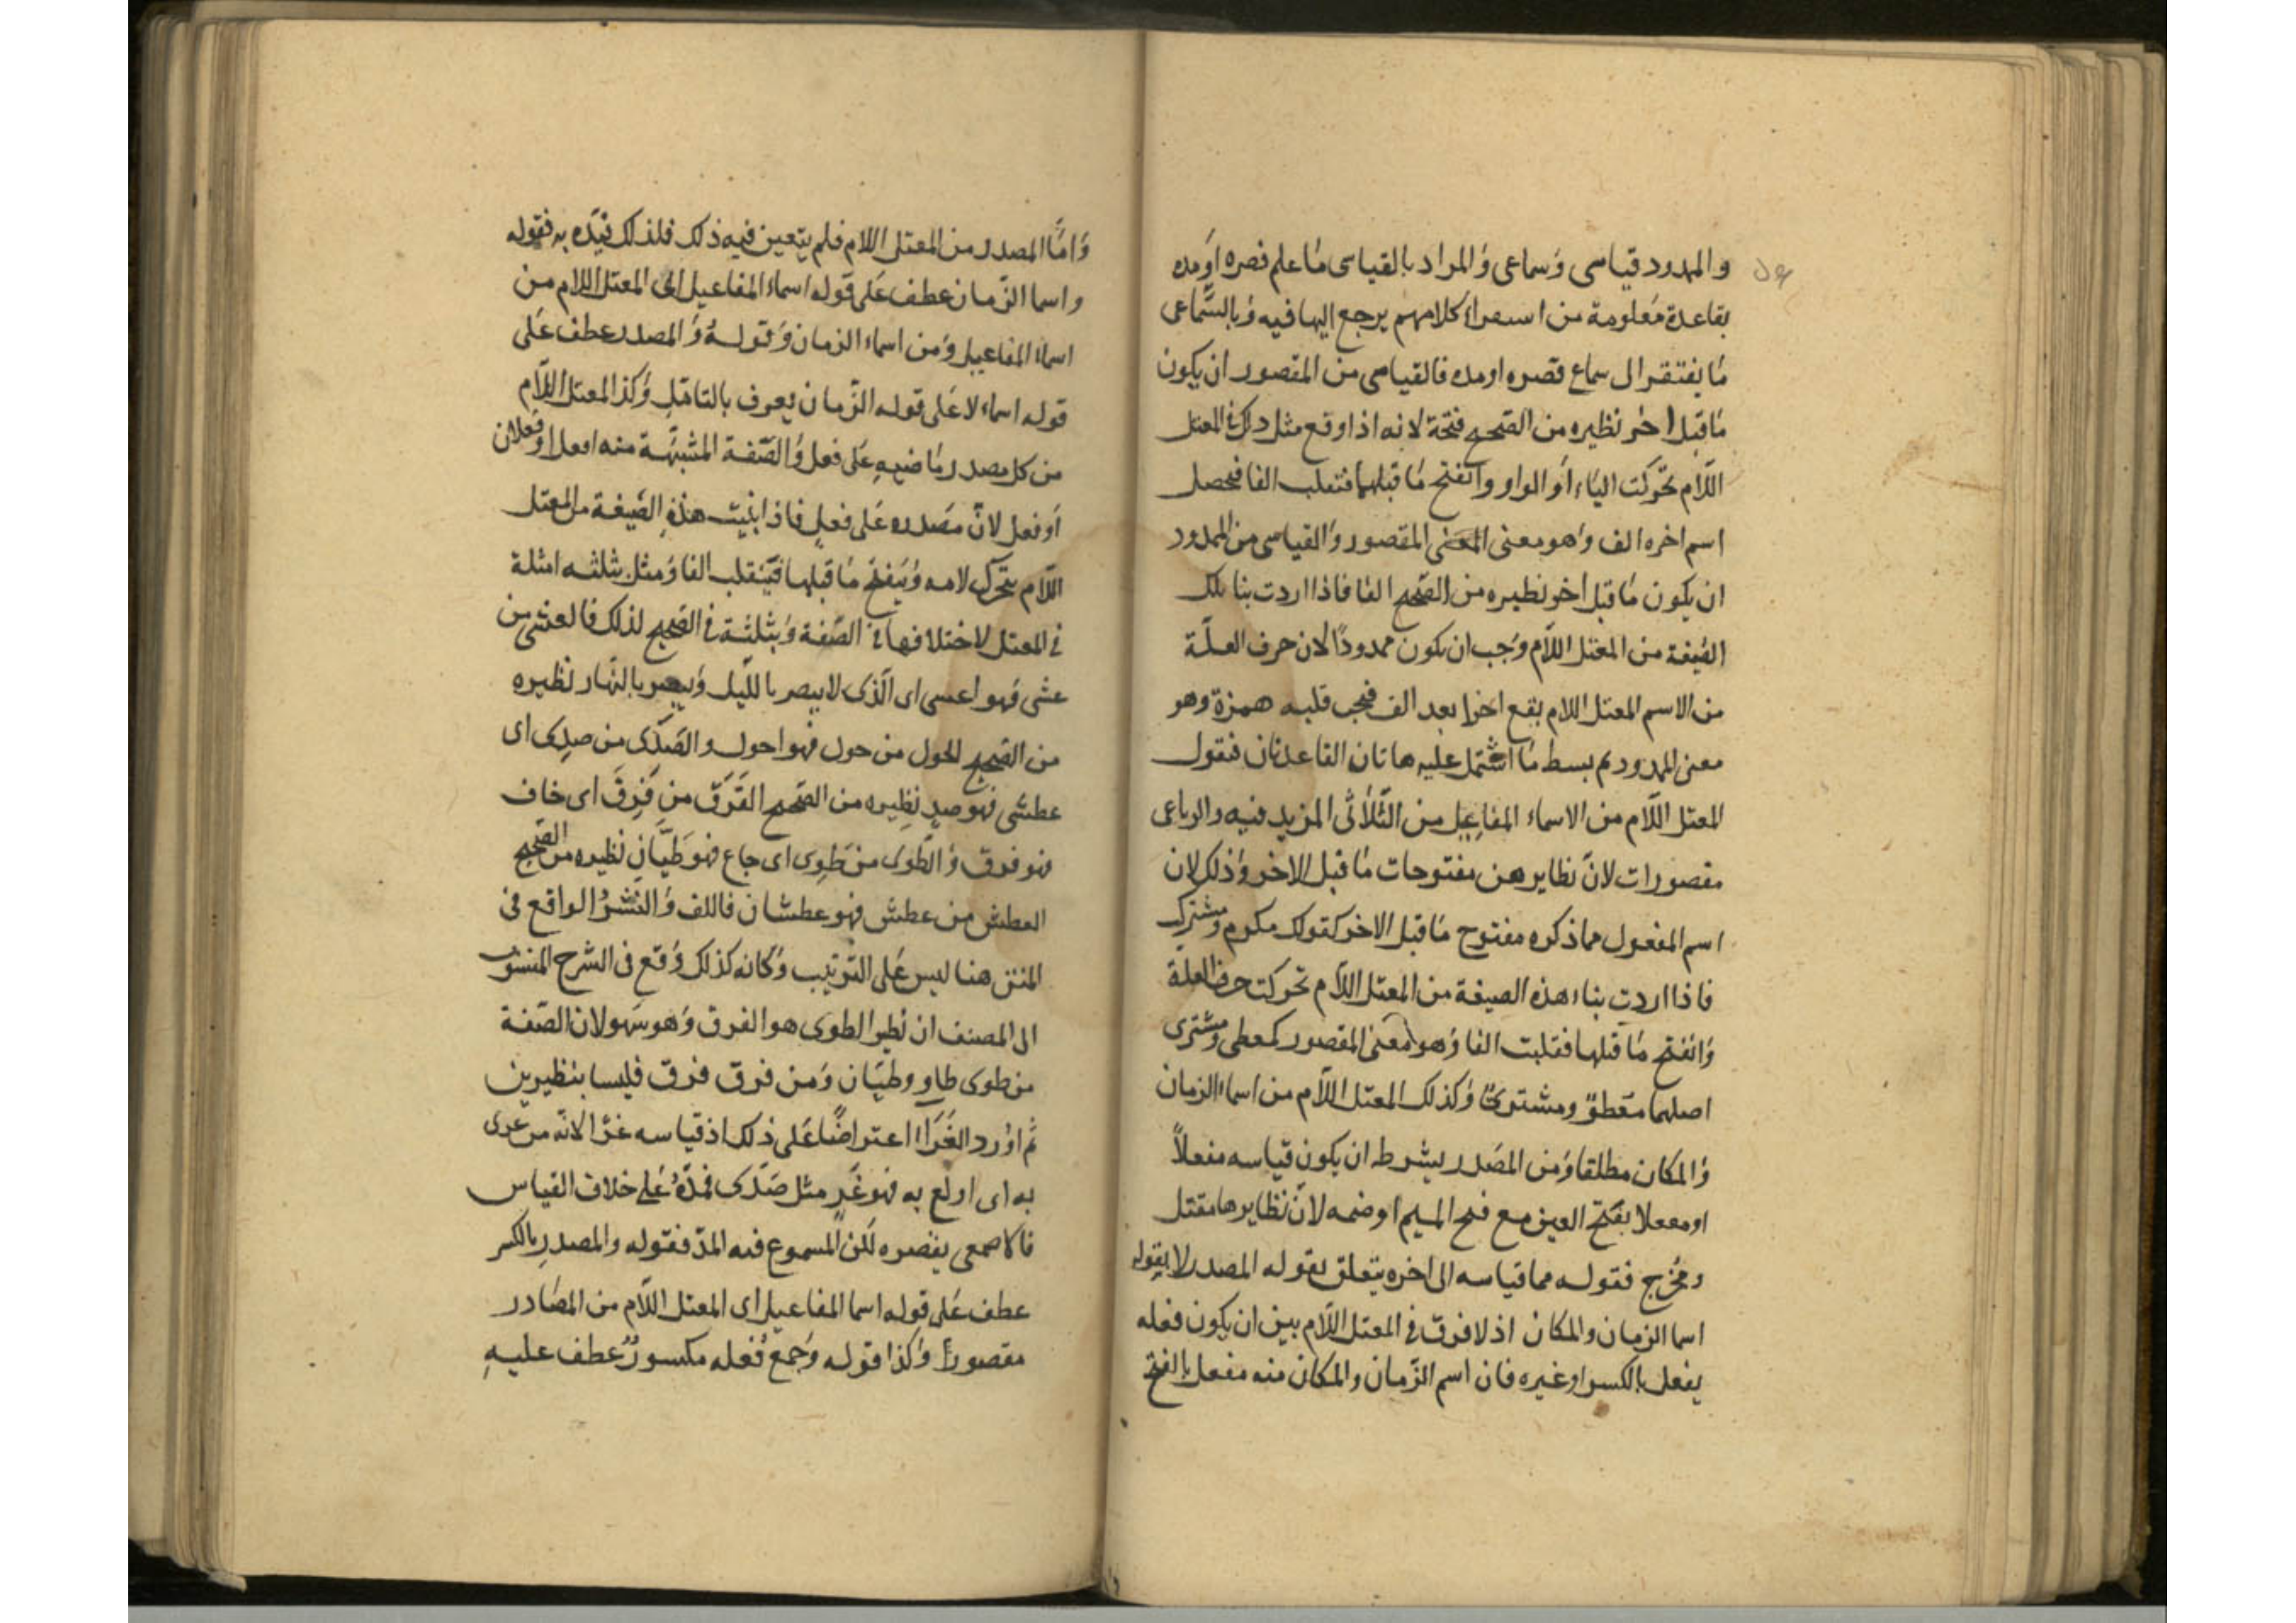 والممدود قياسى وَسماعى وَالمراد بالقياسى مَا علم قصره اوَمده
بقاعدة مَعلومة من استقراء كلامهم يرجع اليها فيه وَبالسَّماعى
مَا يفتقر الى سماع قصره او مده فالقياسى من المقصور ان يكون
مَا قبل اخر نظيره من الصَّحيح فتحة لانه اذا وقع مثل ذلك فى المعتل
اللّام تحّركت الياء اَو الواو وانفتح مَا قبلهما فتقلب الفا فحصل
اسم اخره الف وَهو معنى المقصور وَالقياسى من الممدود
ان يكون مَا قبل اخر نظيره من الصَّحيح الفا فاذا اردت بنا تلك
الصّيغة من المعتل اللّام وَجب ان يكون ممدودًا لان حرف العلّة
من الاسم المعتل اللام يقع اخرا بعد الف فيجب قلبه همزة وهو
معنى الممدود ثم بسط مَا اشتمل عليه هاتان القاعدتان فنقول
المعتل اللّام من الاسماء المفاعيل من الثّلاثى المزيد فيه والرباعى
مقصورات لانّ نظايرهن مفتوحات مَا قبل الاخر وَذلك لان
اسم المفعول مما ذكره مفتوح مَا قبل الاخر كقولك مكرم ومشترك
فاذا اردت بناء هذه الصيغة من المعتل اللّام تحركت حرف العلة
وَانفتح مَا قبلها فقلبت الفا وَهو معنى المقصور كمعطى ومشترى
اصلهما معَطوٌ ومشترىٌ وَكذلك المعتل اللّام من اسماء الزمان
وَالمكان مطلقا وَمن المصَدر بشرط ان يكون قياسه مفعلاً
او مفعلا بفتح العين مع فتح الميم او ضمه لانّ نظايرها مقتل
ومخرج فقوله مما قياسه الى اخره يتعلق بقوله المصدر لا بقوله
اسما الزمان والمكان اذ لا فرق فى المعتل اللّام بين ان يكون فعله
يفعل بالكسر او غيره فان اسم الزّمان والمكان منه مفعل بالفتح
وَامَّا المصدر من المعتل اللام فلم يتعين فيه ذلك فلذلك قيّده به فقوله
واسما الزّمان عطف عَلى قوله اسماء المفاعيل اى المعتل اللام من
اسماء المفاعيل وَمن اسماء الزمان وَقولهُ وَالمصدر عطف عَلى
قوله اسماء لا عَلى قوله الزّمان يعرف بالتامّلِ وَكذا المعتل اللّام
من كل مصدر مَاضيهِ عَلى فعل وَالصّفة المشبّهة منه افعل او فعلان
اَو فعل لانّ مَصدره عَلى فعلٍ فاذا بنيت هذهِ الصّيغة من المعتل
اللّام يتحّرك لامه وَينفتح مَا قبلها فيَنقلب الفا وَمثل بثلثه امثلة
فى المعتل لاختلافها فى الصّفة وَبثلثة فى الصحيح لذلك فالعشى من
عشى فهو اعشى اى الّذى لا يبصر بالليل وَيبصر بالنّهار نظيره
من الصّحيح الحول من حول فهو احول والصَّدَى من صدِى اى
عطش فهو صدٍ نظيره من الصّحيح الفَرَق من فَرِقَ اى خاف
فهو فرق وَالطّوى من طَوِى اى جاع فهو طَيّان نظيره من الصّحيح
العطش من عطش فهو عطشان فاللف وَالنّشرُ الواقع فى
المتن هنا ليس عَلى الترتيب وَكانه كذلك وَقع فى الشرح المنسوب
الى المصنف ان نظير الطوى هو الفرق وَهو سَهو لان الصّفة
من طوى طاوٍ وطيّان وَمن فرق فرق فليسا بنظيرين
ثم اوَرد الغَرَاءَ اعتراضًا عَلى ذلك اذ قياسه غرًا لانّه من غرى
به اى اولع به فهو غَرٍ مثل صَدَى فمدّهُ عَلى خلاف القياس
فالاصمعى يقصره لكن المسموع فيه المدّ فقوله والمصدرِ بالكسر
عطف عَلى قوله اسما المفاعيل اى المعتل اللّام من المصَادر
مقصورًا وَكذا قوله وَجمع فُعله مكسورٌ عطف عليهِ